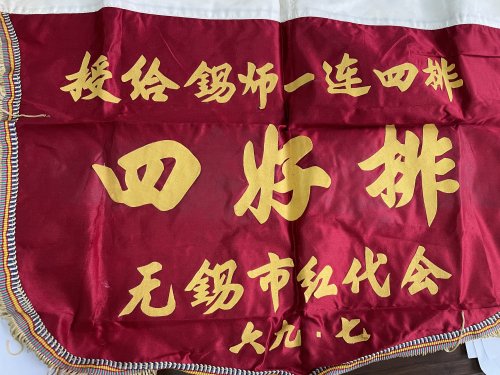 授给锡师一连四排
四好排
无锡市红代会
六九·七